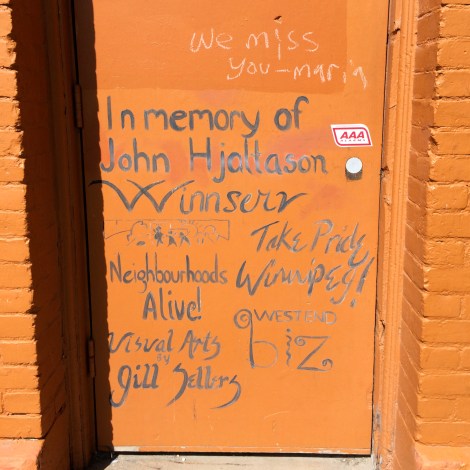 we miss
you-maria
In memory of
John Hjallason
Winnserv
Take Pride
Winnipeg!
Neighbourhoods
Alive!
WEST END
biz
Visual Arts
by
Jill Sellers
AAA